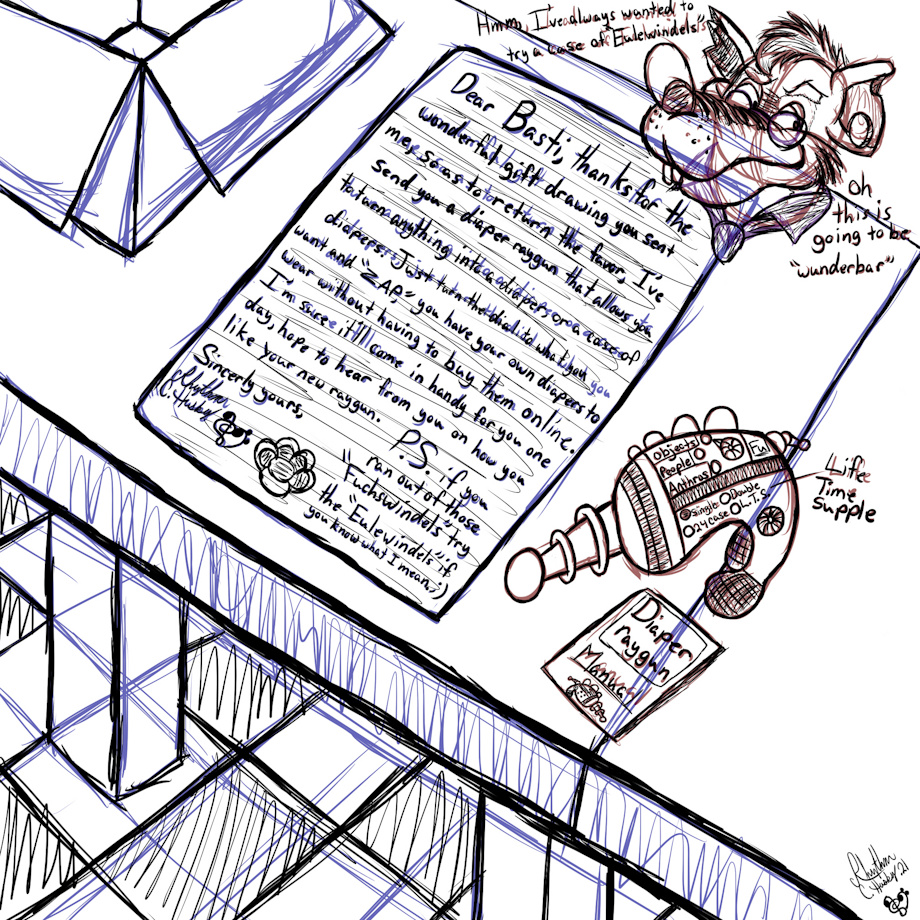 Hmm, I've always wanted to
try a case of Eulewindels's
Dear Basti, thanks for the
wonderful gift drawing you sent
me, so as to return the favor, I've
send you a diaper raygun that allows you
to turn anything into a diapers or a cases of
diapers. Just turn the dial to what you
want and "ZAP" you have your own diapers to
wear without having to buy them online.
I'm suree it'll come in handy for you one
day, hope to hear from you on how you
like your new raygun.
Sincerly yours,
Rhythm
C. Husky
P.S. if you
ran out of those
"Fuchswindel's" try
the "Eulewindels" if
you know what I mean, ;)
oh
this is
going to be
"wunderbar"
Objects
People
Anthros
Single Double
24 case L.T.S
Fu
Liffe
Time
supple
Diaper
raygun
Manual
Rhythm
Husky '21